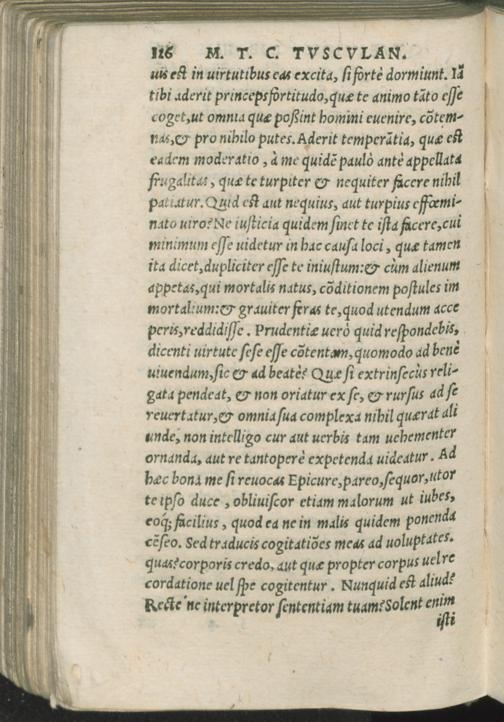 116 M. T. C. TVSCVLAN.
uis est in uirtutibus eas excita, si fortè dormiunt. Iā
tibi aderit princeps fortitudo, quæ te animo tāto esse
coget, ut omnia quæ poßint homini euenire, cōtem-
nas, & pro nihilo putes. Aderit temperātia, quæ est
eadem moderatio, à me quidē paulò antè appellata
frugalitas, quæ te turpiter & nequiter facere nihil
patiatur. Quid est aut nequius, aut turpius effœmi-
nato uiro? Ne iusticia quidem sinet te ista facere, cui
minimum esse uidetur in hac causa loci, quæ tamen
ita dicet, dupliciter esse te iniustum: & cùm alienum
appetas, qui mortalis natus, cōditionem postules im
mortalium: & grauiter feras te, quod utendum acce
peris, reddidisse. Prudentiæ uerò quid respondebis,
dicenti uirtute sese esse cōtentam, quomodo ad benè
uiuendum, sic & ad beatè? Quæ si extrinsecùs reli-
gata pendeat, & non oriatur ex se, & rursus ad se
reuertatur, & omnia sua complexa nihil quærat ali
unde, non intelligo cur aut uerbis tam uehementer
ornanda, aut re tantoperè expetenda uideatur. Ad
hæc bona me si reuocas Epicure, pareo, sequor, utor
te ipso duce, obliuiscor etiam malorum ut iubes,
eoq́; facilius, quod ea ne in malis quidem ponenda
cēseo. Sed traducis cogitatiōes meas ad uoluptates.
quas? corporis credo, aut quæ propter corpus uel re
cordatione uel spe cogitentur. Nunquid est aliud?
Recte ne interpretor sententiam tuam? Solent enim
isti